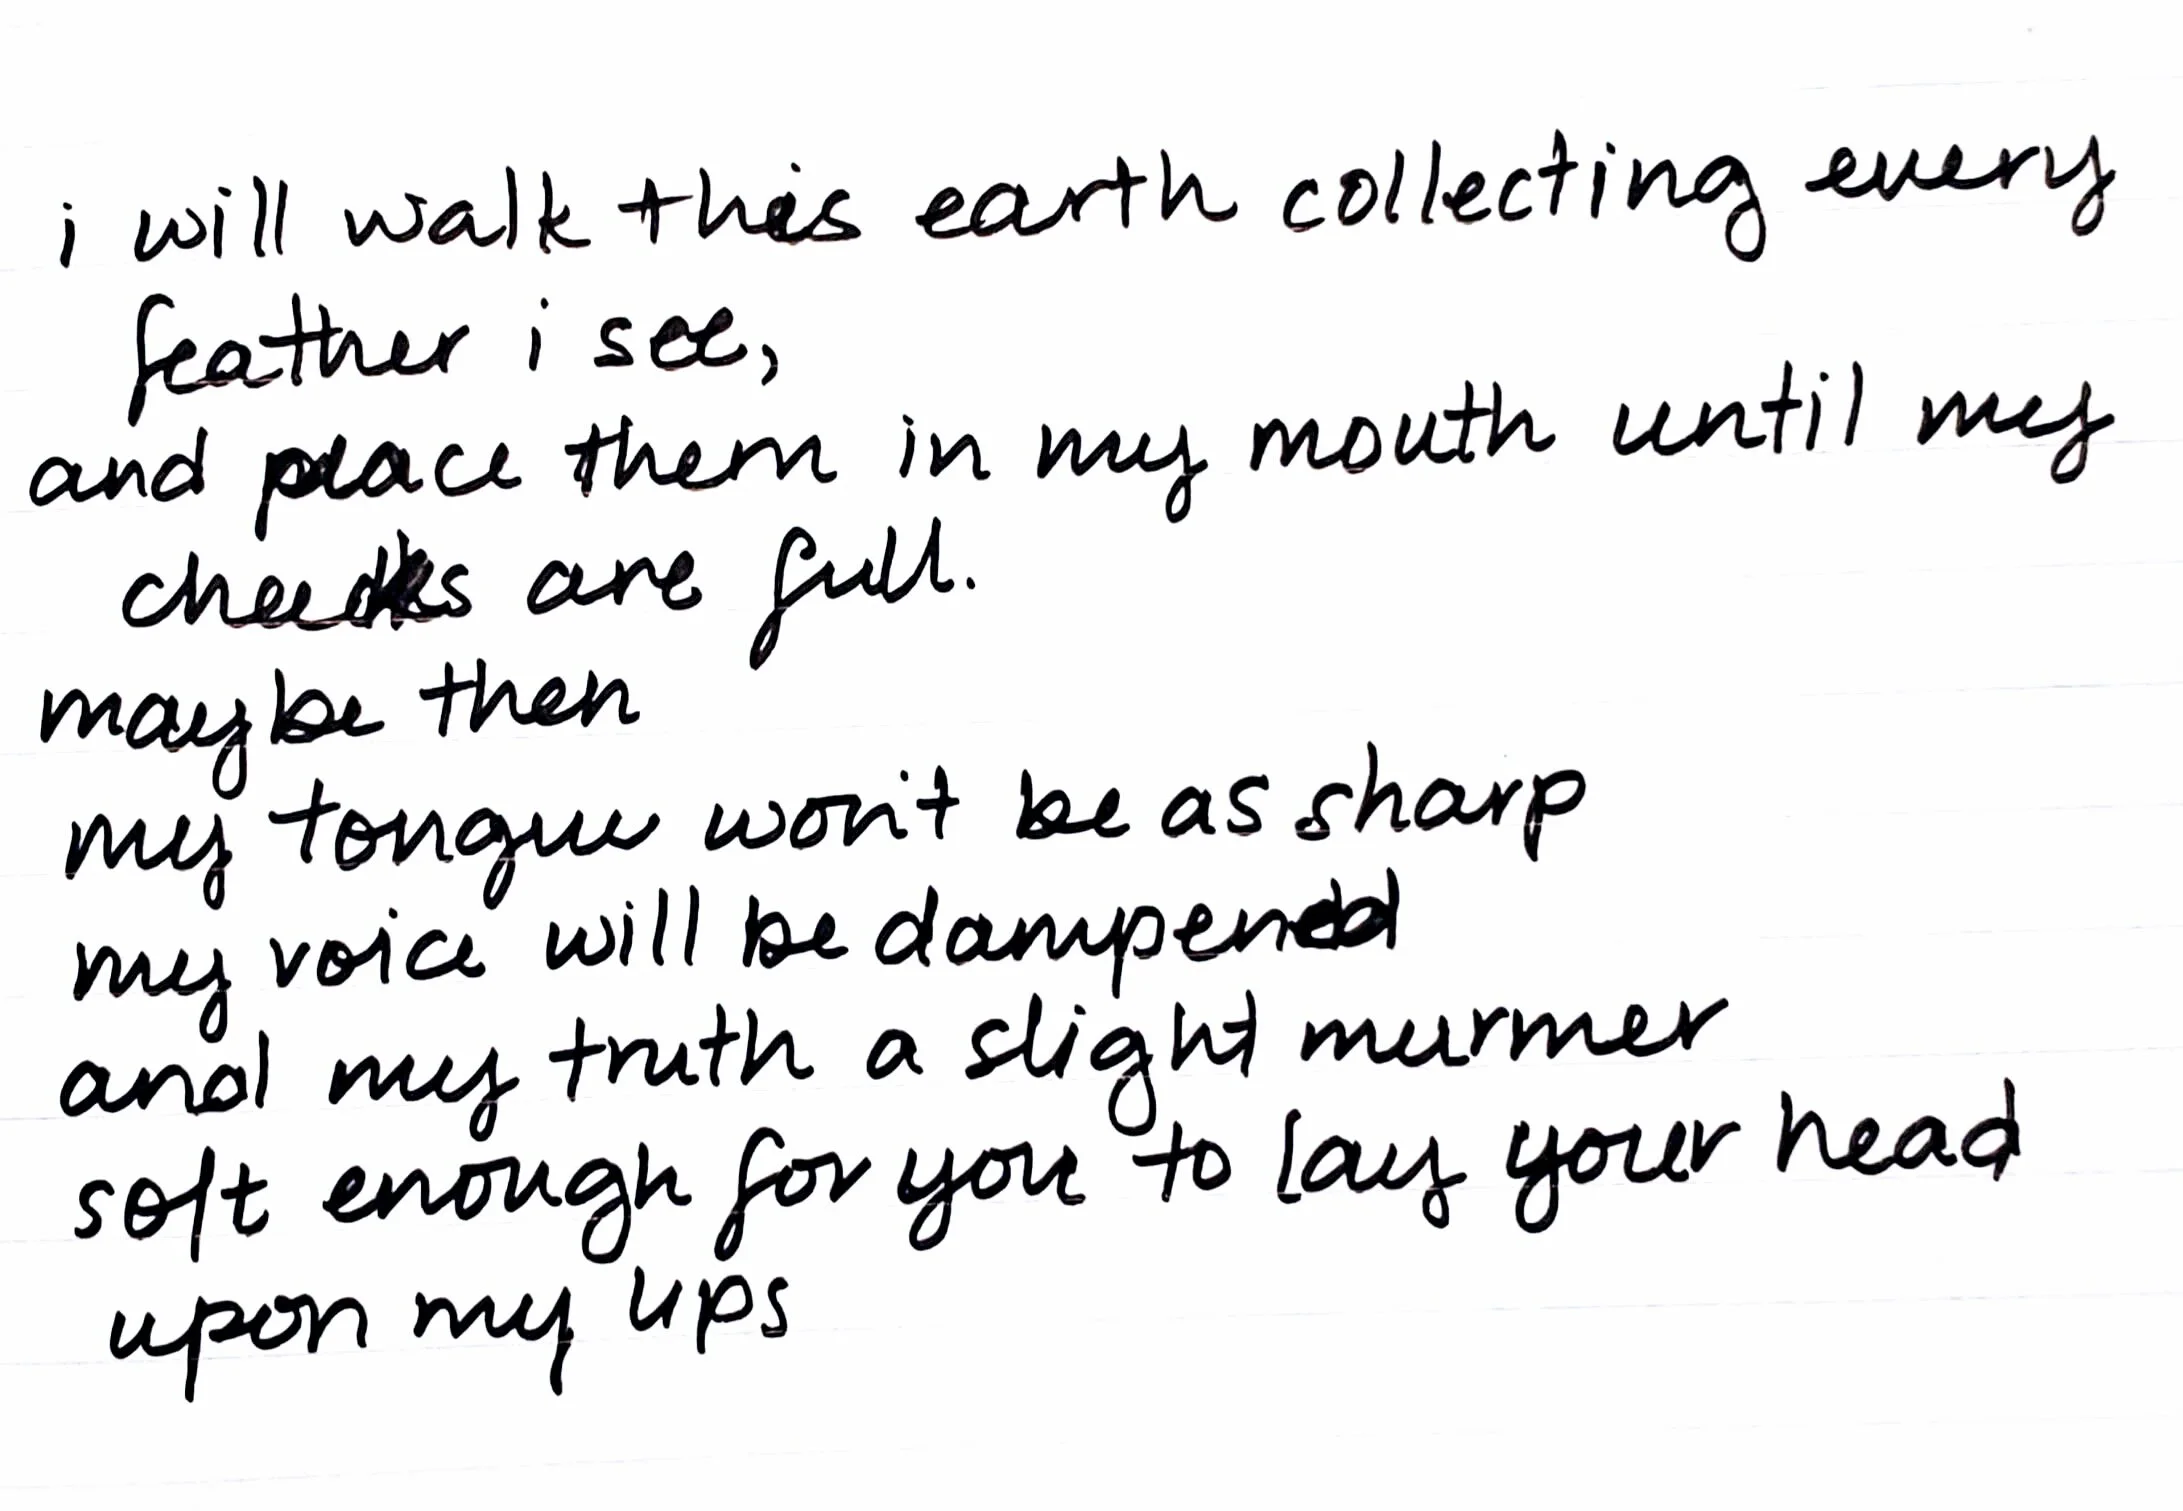 i will walk this earth collecting every
feather i see,
and place them in my mouth until my
cheeks are full.
maybe then
my tongue won't be as sharp
my voice will be dampened
and my truth a slight murmer
soft enough for you to lay your head
upon my lips